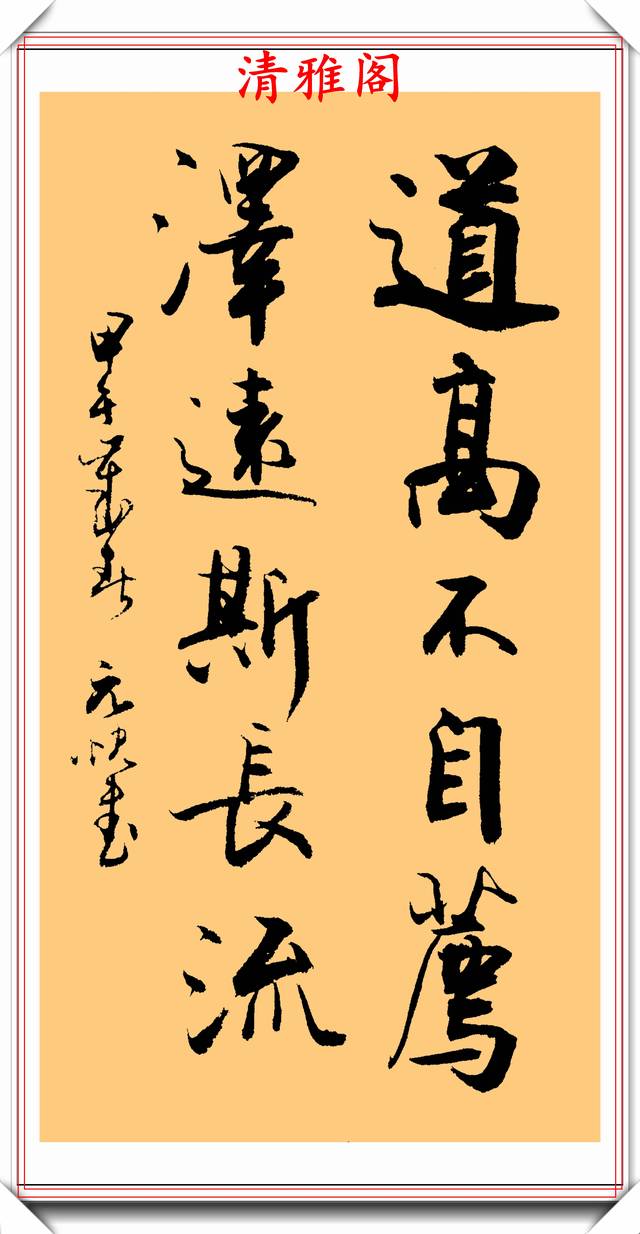 清雅阁
道高不自薦
澤遠斯長流
甲午萬春 元快書